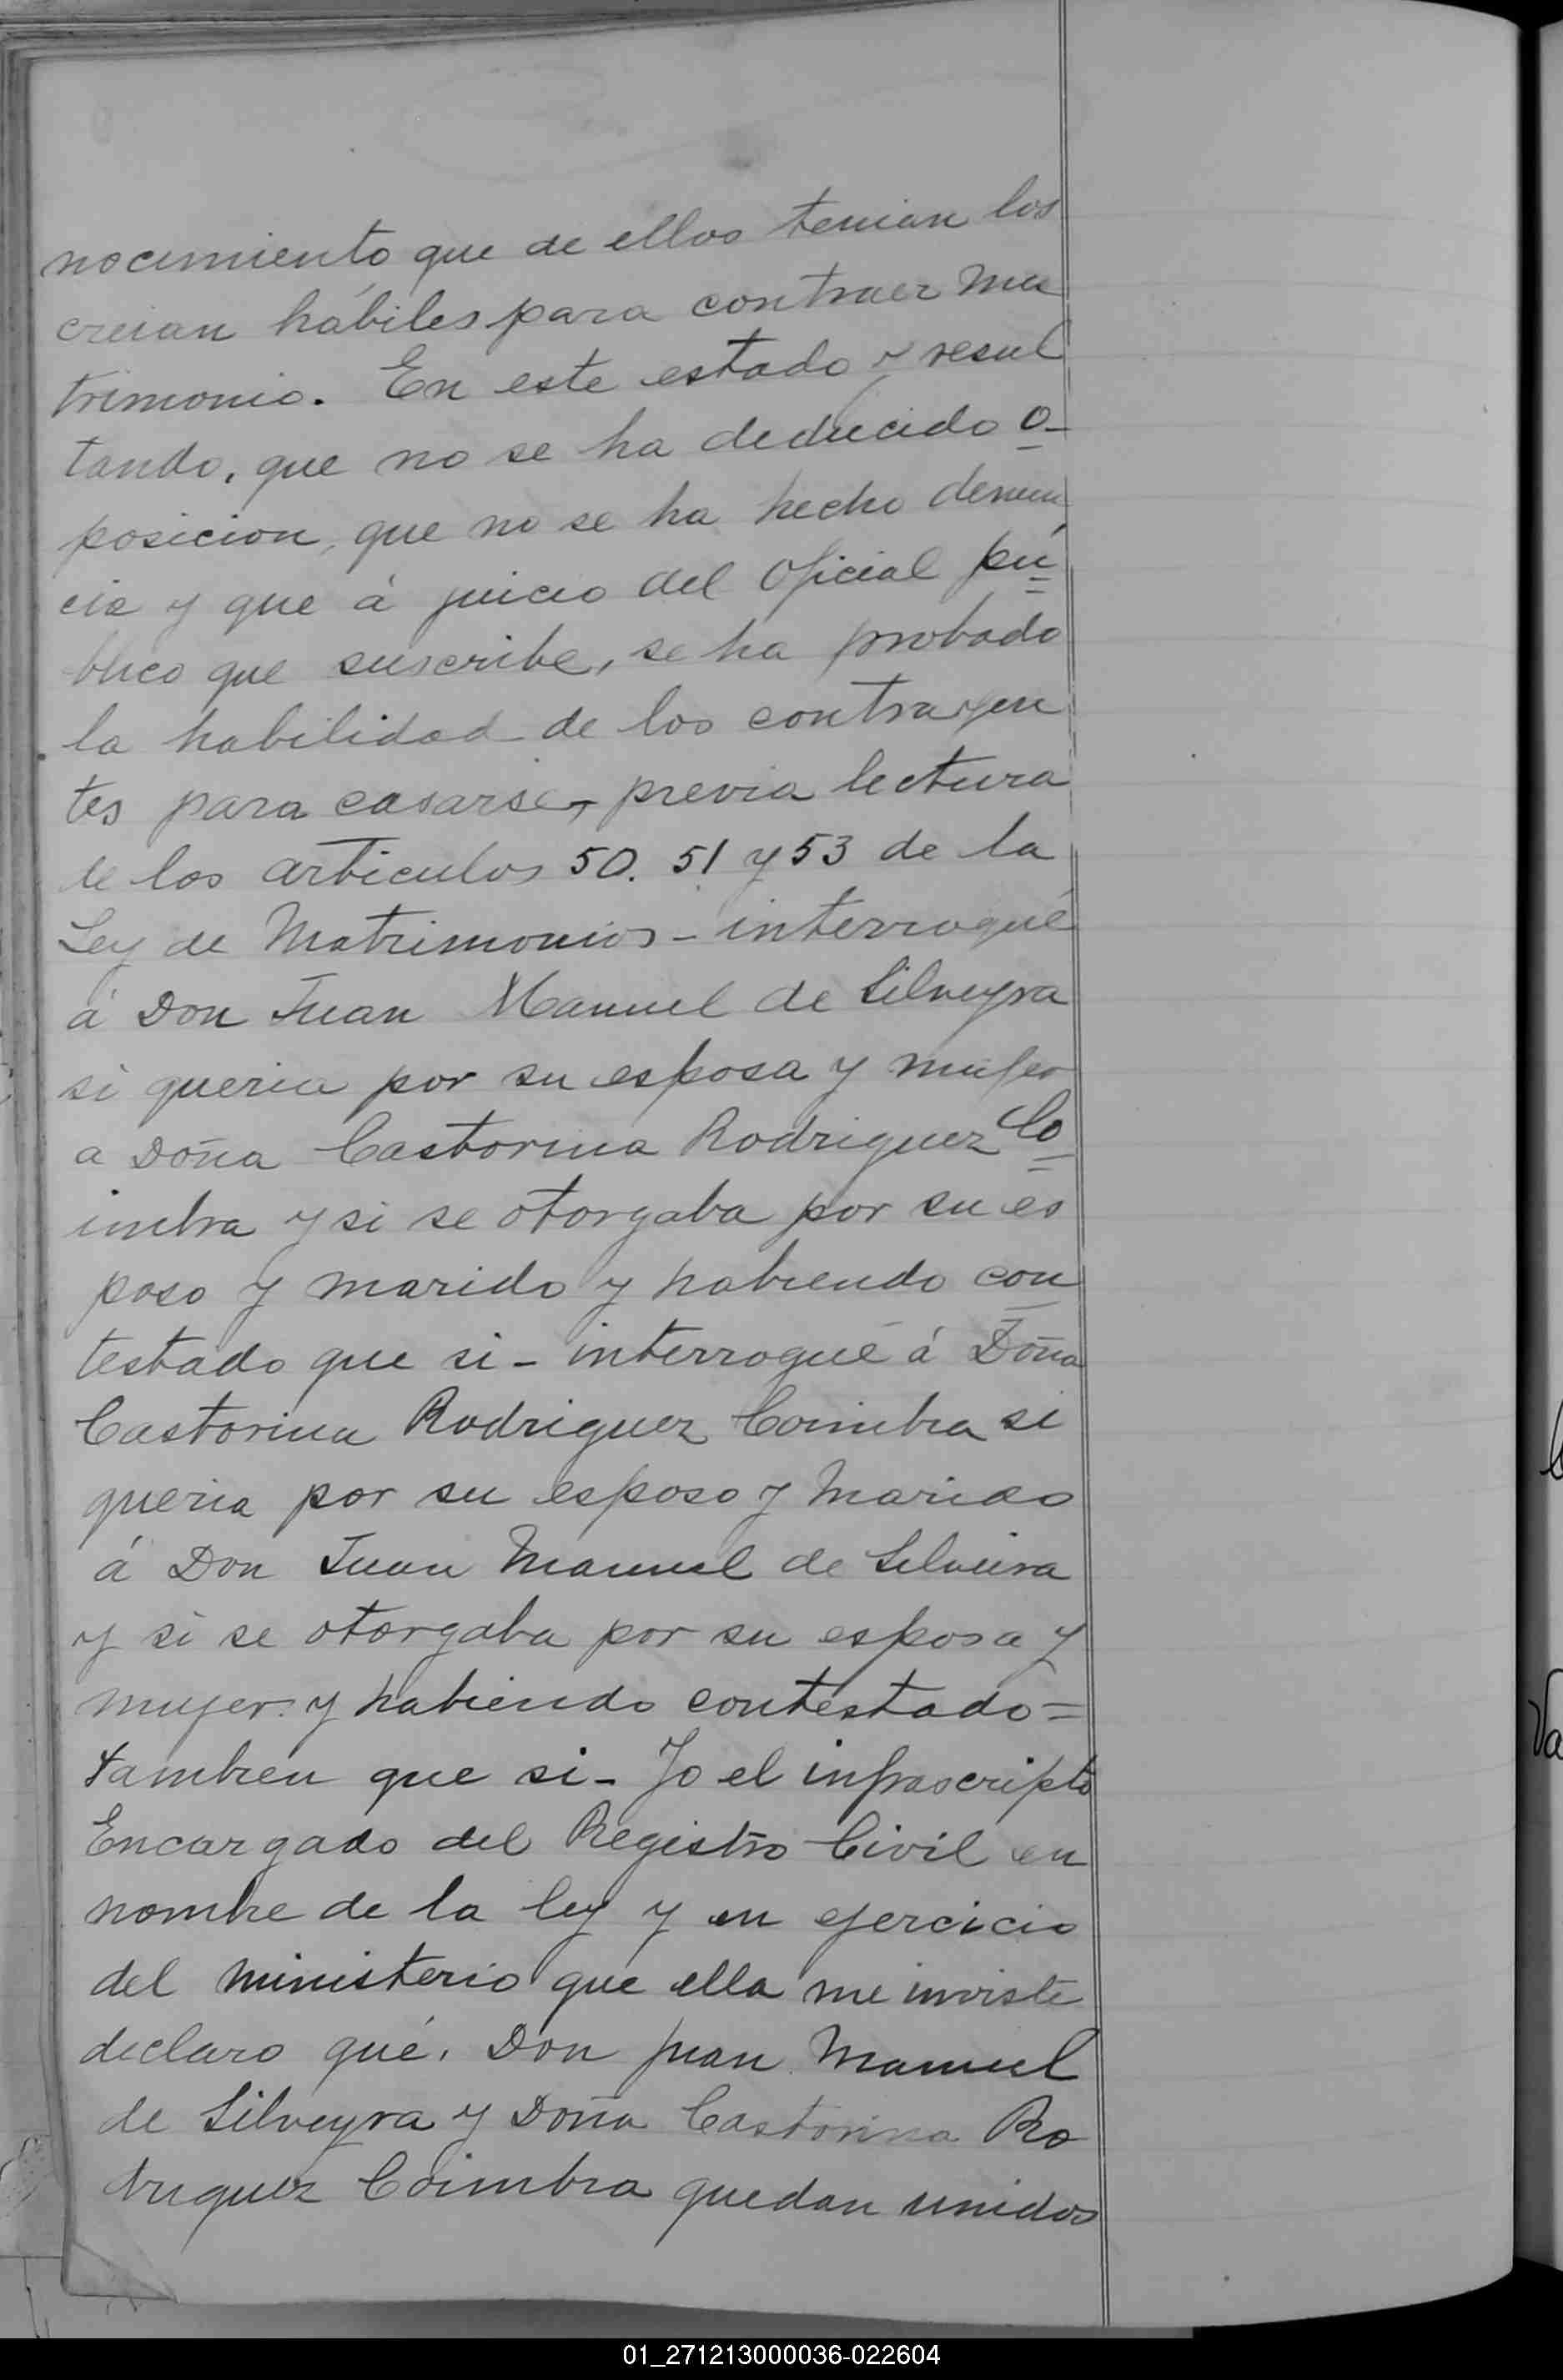 nocimiento que de ellos tenian los
creian hábiles para contraer ma
trimonio. En este estado y resul
tando, que no se ha deducido o-
posicion, que no se ha hecho denun
cia y que á juicio del Oficial pú
blico que suscribe, se ha probado
la habilidad de los contrayen
tes para casarse, previa lectura
de los articulos 50. 51 y 53 de la
Ley de Matrimonios - interrogué
á Don Juan Manuel de Silveyra
si queria por su esposa y mujer
a Doña Castorina Rodriguez Co
imbra y si se otorgaba por su es
poso y marido y habiendo con
testado que si - interrogué á Doña
Castorina Rodriguez Coimbra si
queria por su esposo y marido
á Don Juan Manuel de Silveira
y si se otorgaba por su esposa y
mujer y habiendo contestado =
tambien que si - Yo el infrascripto
Encargado del Registro Civil en
nombre de la ley y en ejercicio
del ministerio que ella me inviste
declaro qué, Don Juan Manuel
de Silveyra y Doña Castorina Ro
driguez Coimbra quedan unidos
01_271213000036-022604